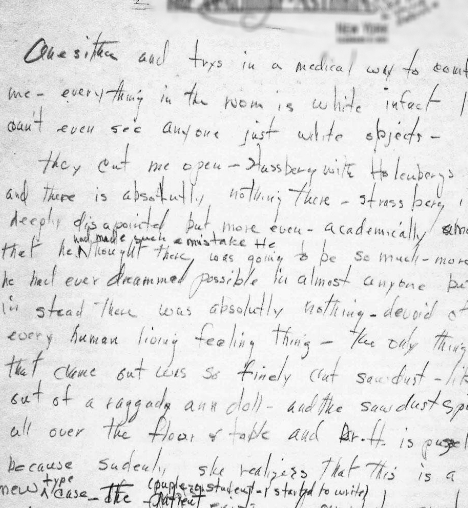 NEW YORK
Onesitha and trys in a medical way to
me - everything in the room is white infact I
can't even see anyone just white objects -
they cut me open - Strassberg with Hohenbergs
and there is absolutly nothing there - strassberg is
deeply disapointed but more even - academically
had made such a mistake He
that he thought there was going to be so much - more
he had ever dreammed possible in almost anyone but
in stead there was absolutly nothing - devoid of
every human living feeling thing - the only thing
that came out was so finely cut sawdust - like
out of a raggady ann doll - and the sawdust
all over the floor & table and Dr. H. is
because sudenly she realizes that this is a
type (pupil - or student - I started to write)
new case - the patient